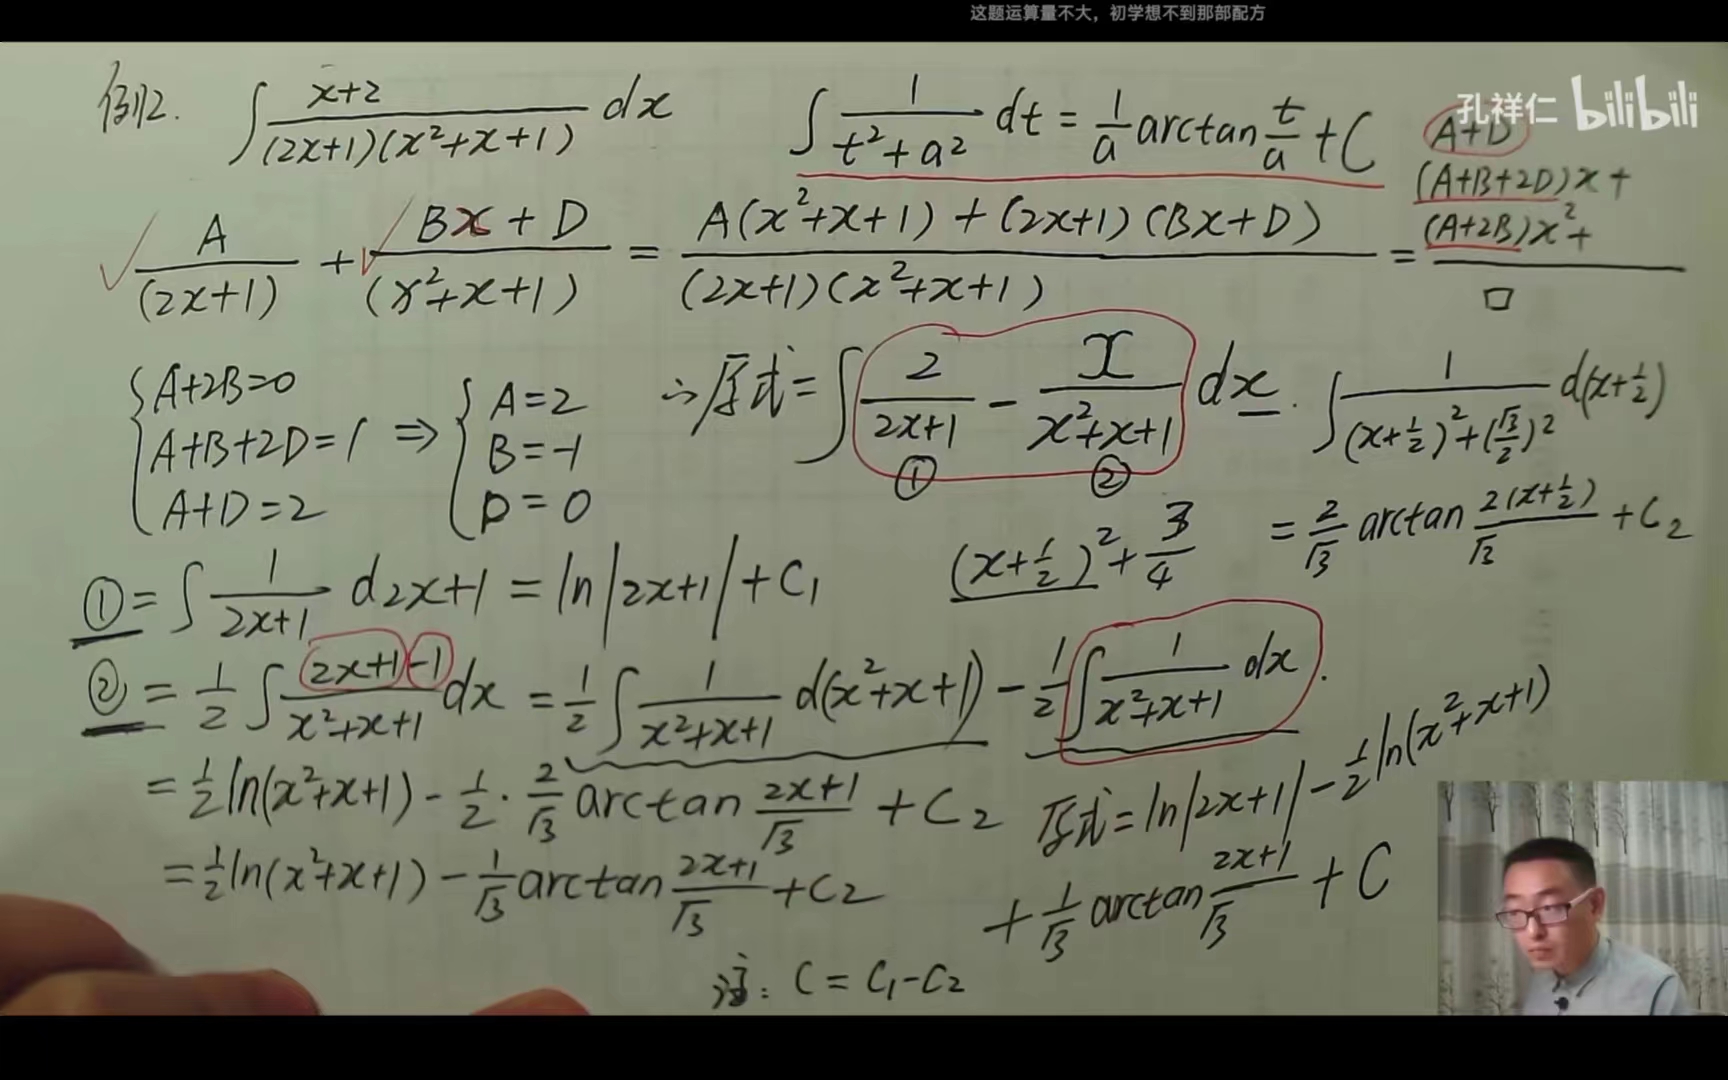 这题运算量不大，初学想不到那部配方
孔祥仁 bilibili
例12. ∫ (x+2)/((2x+1)(x²+x+1)) dx
∫ 1/(t²+a²) dt = 1/a arctan t/a + C
A/(2x+1) + (Bx+D)/(x²+x+1) = (A(x²+x+1)+(2x+1)(Bx+D))/((2x+1)(x²+x+1)) =
A+D
(A+B+2D)x+
(A+2B)x²+
□
{A+2B=0
A+B+2D=1
A+D=2
⇒ {A=2
B=-1
D=0
∴原式=∫ 2/(2x+1) - x/(x²+x+1) dx.
① ②
∫ 1/((x+1/2)²+(√3/2)²) d(x+1/2)
= 2/√3 arctan 2(x+1/2)/√3 + C₂
(x+1/2)²+3/4
①=∫ 1/(2x+1) d2x+1 = ln|2x+1|+C₁
②= 1/2 ∫ (2x+1-1)/(x²+x+1) dx = 1/2 ∫ 1/(x²+x+1) d(x²+x+1) - 1/2 ∫ 1/(x²+x+1) dx.
= 1/2 ln(x²+x+1) - 1/2 · 2/√3 arctan (2x+1)/√3 + C₂
= 1/2 ln(x²+x+1) - 1/√3 arctan (2x+1)/√3 + C₂
原式= ln|2x+1| - 1/2 ln(x²+x+1)
+ 1/√3 arctan (2x+1)/√3 + C
注: C = C₁-C₂